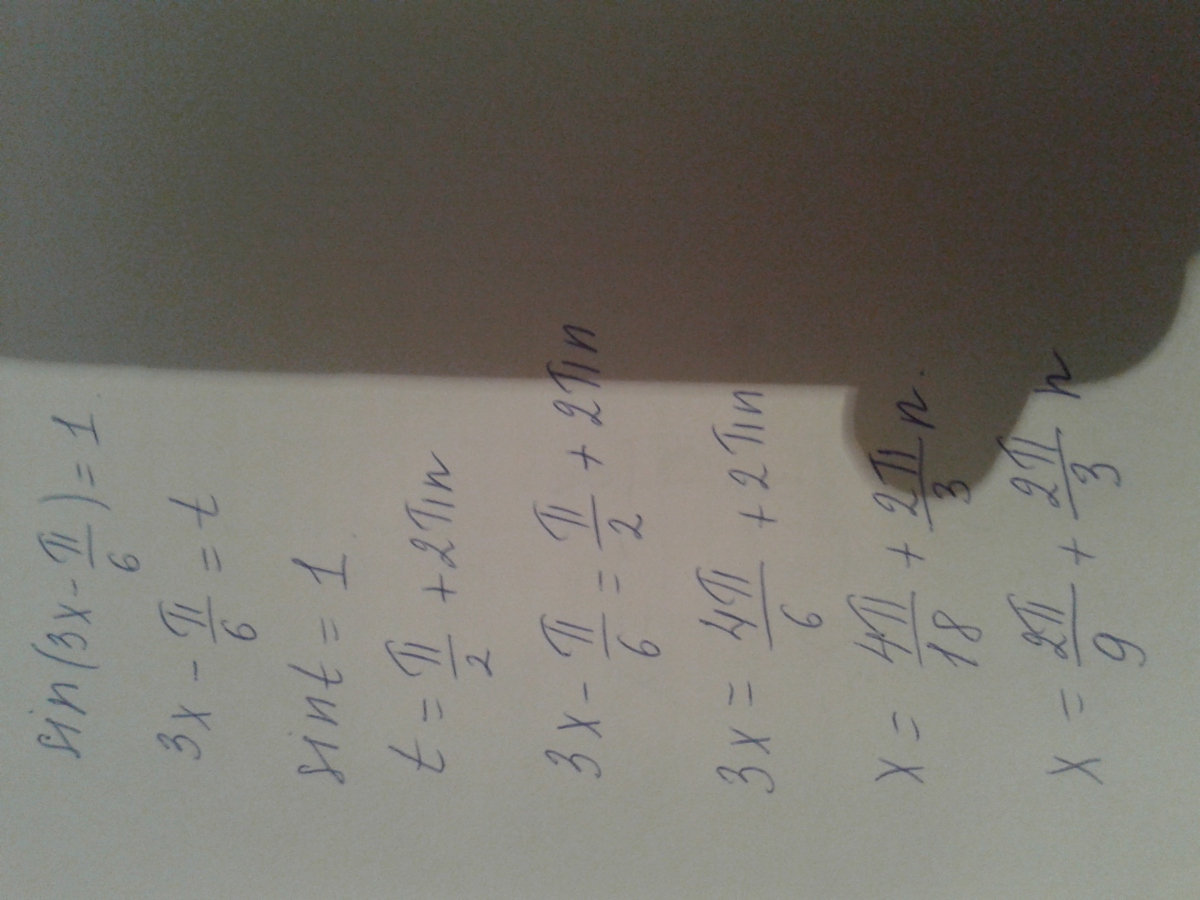 sin(3x - π/6) = 1
3x - π/6 = t
sint = 1
t = π/2 + 2πn
3x - π/6 = π/2 + 2πn
3x = 4π/6 + 2πn
x = 4π/18 + 2π/3 n.
x = 2π/9 + 2π/3 n